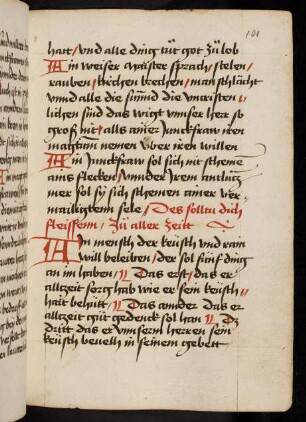 101
hatt / vnd alle ding tüt got zü lob
Ain weiser maister sprach / stelen /
rauben / kirchen brechen / man schlächt
vnnd alle die sünnd die vncristen
lichen sind das wigt vnnser herr so
groß nit / alls ainer Junckfraw iren
magtum nemen vber iren willen
Ain Junckfraw sol sich nit schemen
ains flecken / vnnder Irem antlütz
mer sol sy sich schemen ainer ver
mailligten sele / Des solltu dich
fleissenn / zü aller zeitt
Ain mensch der keüsch vnd rain
will beleiben / der sol fünf ding
an im haben / Das erst / das er
alltzeit sorg hab wie er sein keüsch
hait behütt / Das annder das er
alltzeit güt gedenck sol han Dz
dritt das er vnnserm herren sein
keüsch beuelh in seinem gebett